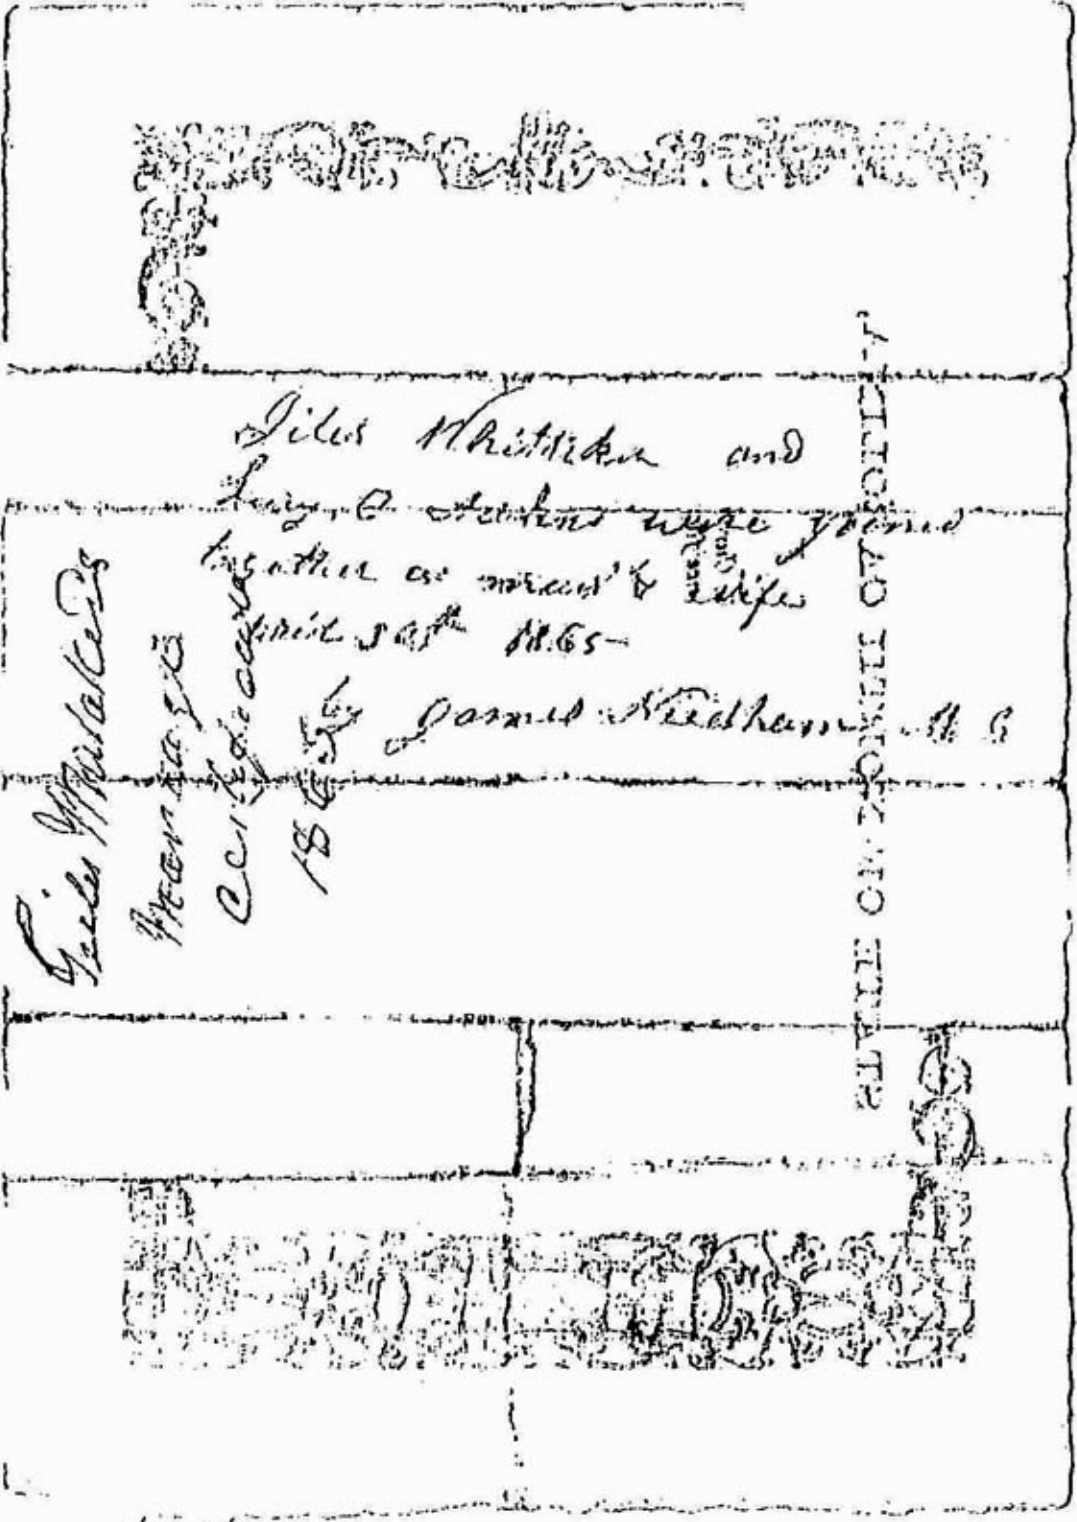 Giles Whitaker and
Lucy were joined
together as man & wife
1865
by James Needham M G
Giles Whitaker's
Marriage
Certificate
1865
STATE OF NORTH CAROLINA